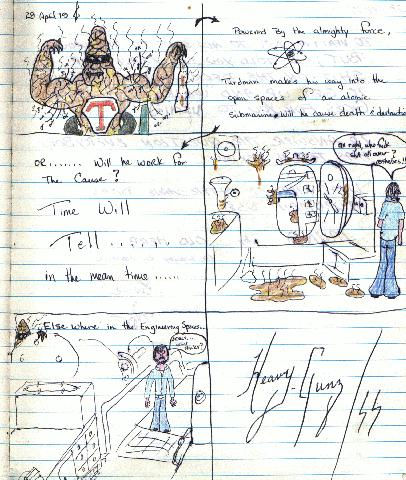 28 April 19
T
Powered By the almighty force,
Turdman makes his way into the
open spaces of an atomic
Submarine. Will he cause death & destruction
or....... Will he work for
The Cause?
Time Will
Tell......
in the mean time......
all right, who took
shit all over?
Else where in the Engineering Spaces..
Heavy-Gunz